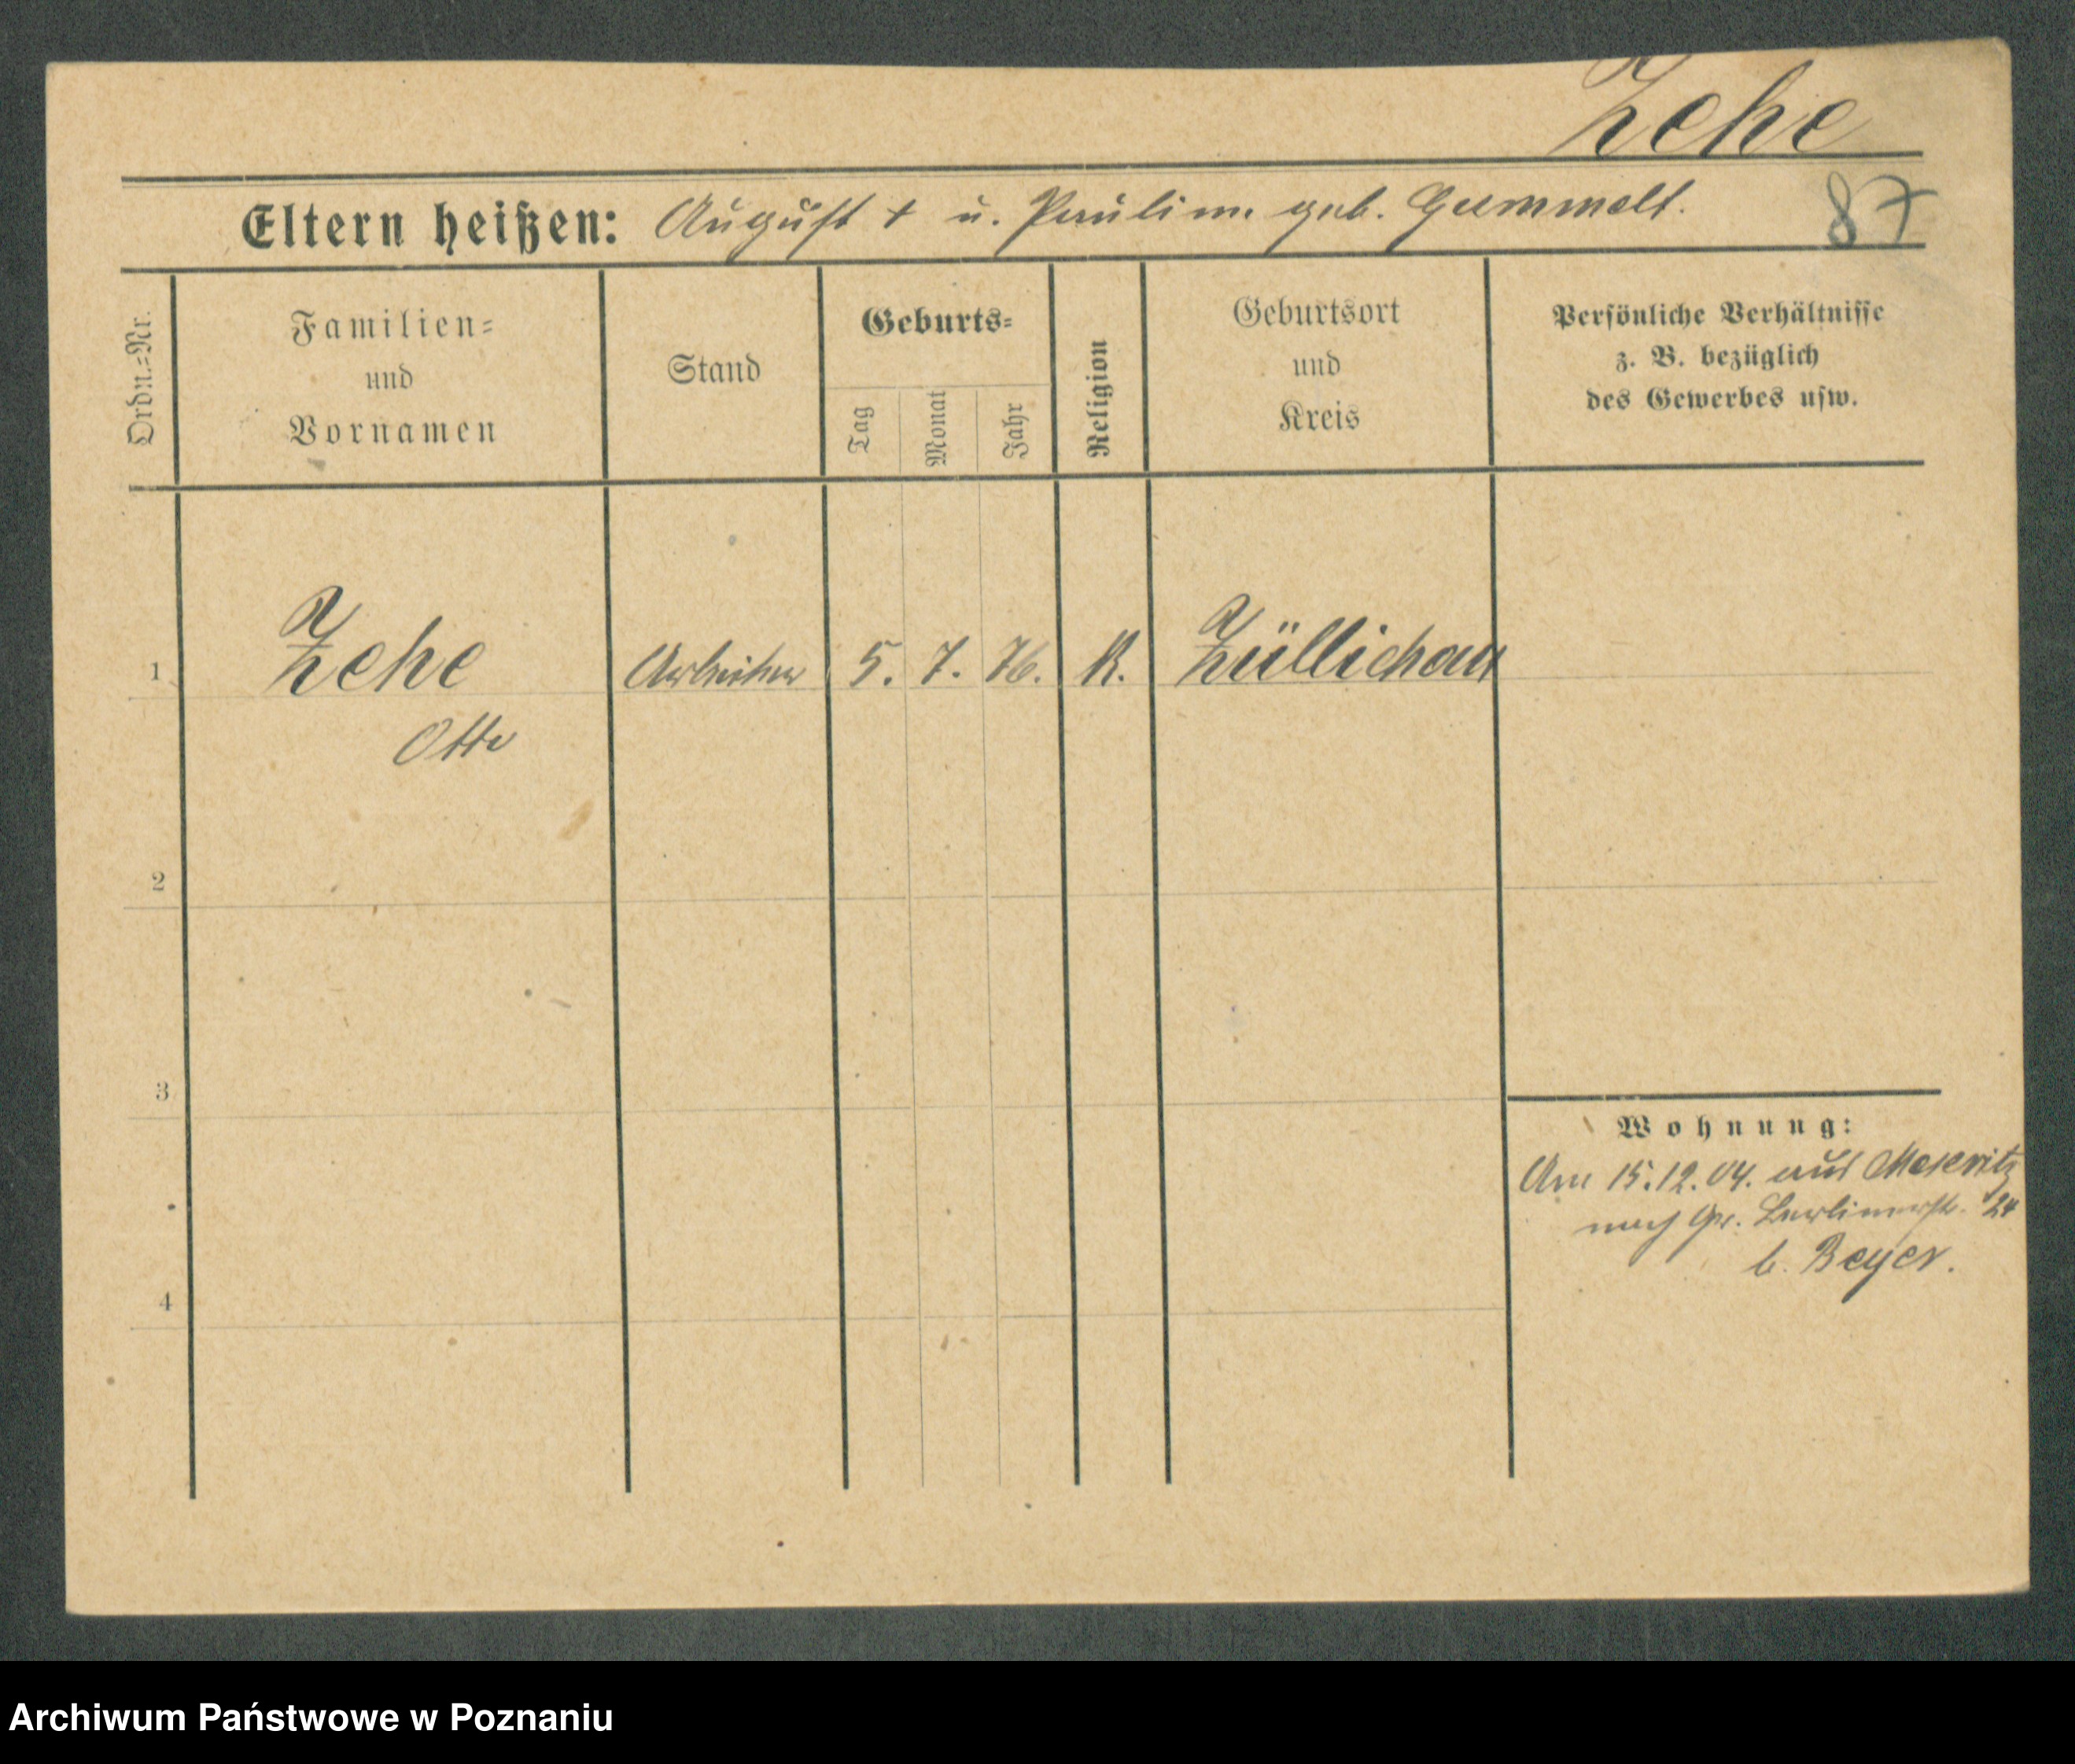 Zehe
Eltern heißen: August † u. Pauline geb. Gummelt.
87
Ordn.=Nr.
Familien=
und
Vornamen
Stand
Geburts=
Tag
Monat
Jahr
Religion
Geburtsort
und
Kreis
Persönliche Verhältnisse
z. B. bezüglich
des Gewerbes usw.
1 Zehe Arbeiter 5. 7. 76. K. Züllichau
Otto
2
3
Wohnung:
Am 15.12.04. aus Meseritz
nach Gr. Berlinerstr. 24
b. Beyer.
4
Archiwum Państwowe w Poznaniu